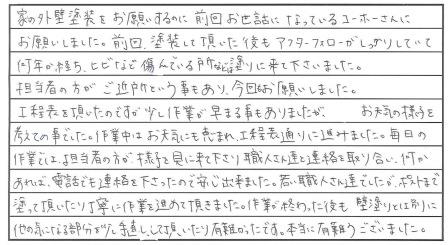 家の外壁塗装をお願いするのに前回お世話になっているユーホーさんに
お願いしました。前回、塗装して頂いた後もアフターフォローがしっかりしていて
何年か経ち、ヒビなどで傷んでいる所など塗りに来て下さいました。
担当者の方がご近所という事もあり、今回もお願いしました。
工程表を頂いたのですが少し作業が早まる事もありましたが、お天気の様子を
考えての事でした。作業中はお天気にも恵まれ、工程表通りに進みました。毎日の
作業では、担当者の方が様子を見に来て下さり職人さん達と連絡を取り合い、何か
あれば、電話でも連絡を下さったので安心出来ました。若い職人さん達でしたが、ポストまで
塗って頂いたり丁寧に作業を進めて頂きました。作業が終わった後も壁塗りとは別に
他の気になる部分が少し手直しして頂いたり有難かったです。本当に有難うございました。